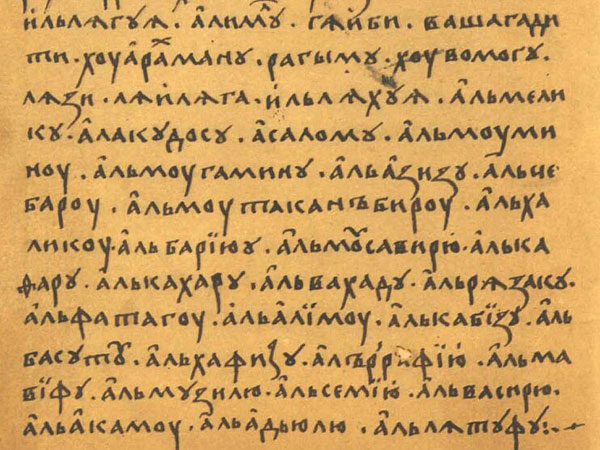 и҆льлѧгуѧ . а҆лимꙋ . гѧ́йби . вашагади
ти . хоуа҆рахману . рагыму . хоу вомогу .
лѧзи . лѧйлѧга . и҆льлѧхуѧ . а҆льмели
ку . а҆лакудосу . а҆салому . а҆льмоуми
ноу . а҆льмоугамину . а҆льа҆зизу . а҆льче
бароу . а҆льмоутаканъбироу . а҆льха
ликоу . а҆льбарїюу . а҆льмꙋсавирю . а҆лька
фару . а҆лькахару . а҆львахаду . а҆льрѧзаку .
а҆льфатагоу . а҆льа҆лїмоу . а҆лькабїзу . а҆ль
басутꙋ . а҆льхафизу . а҆лъррафїю . а҆льма
вїфу . а҆льмузилю . а҆льсемїю . а҆львасирю .
а҆льа҆камоу . а҆льа҆дьюлю . а҆льлѧтуфу :~